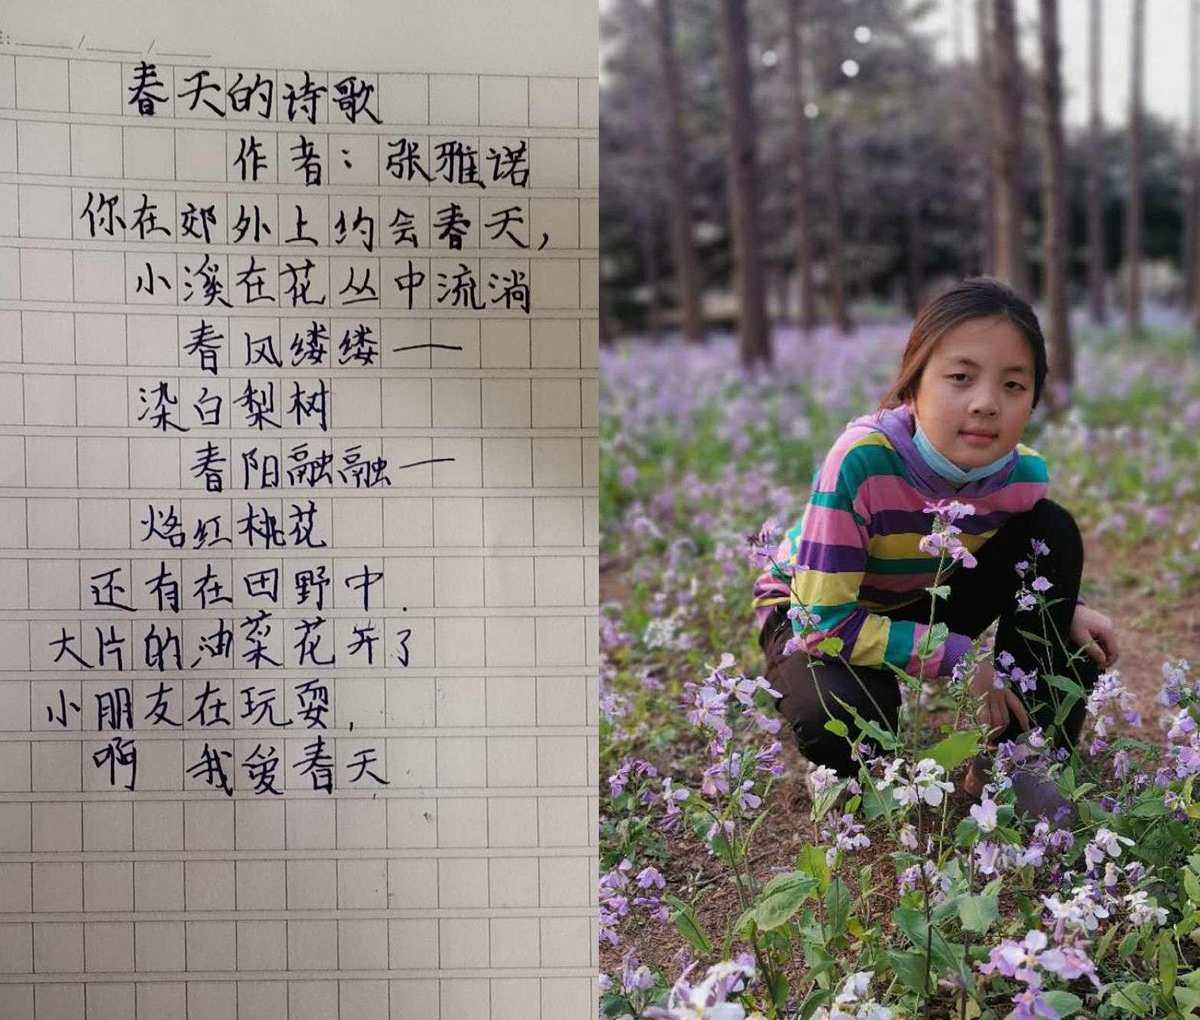 春天的诗歌
作者：张雅诺
你在郊外上约会春天，
小溪在花丛中流淌
春风缕缕——
染白梨树
春阳融融—
烙红桃花
还有在田野中.
大片的油菜花开了
小朋友在玩耍,
啊 我爱春天